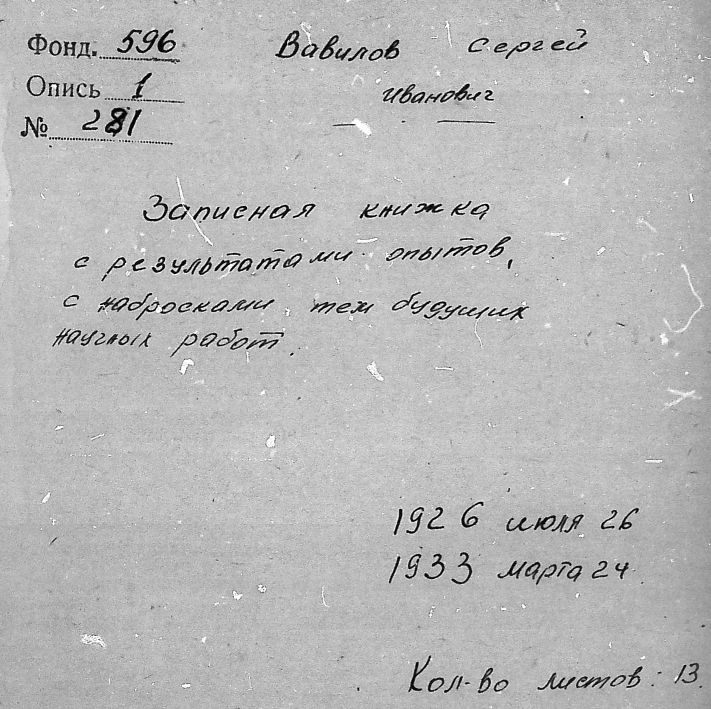 Фонд. 596
Опись 1
№ 281
Вавилов Сергей
Иванович
Записная книжка
с результатами опытов,
с набросками тем будущих
научных работ.
1926 июля 26
1933 марта 24
Кол-во листов: 13.